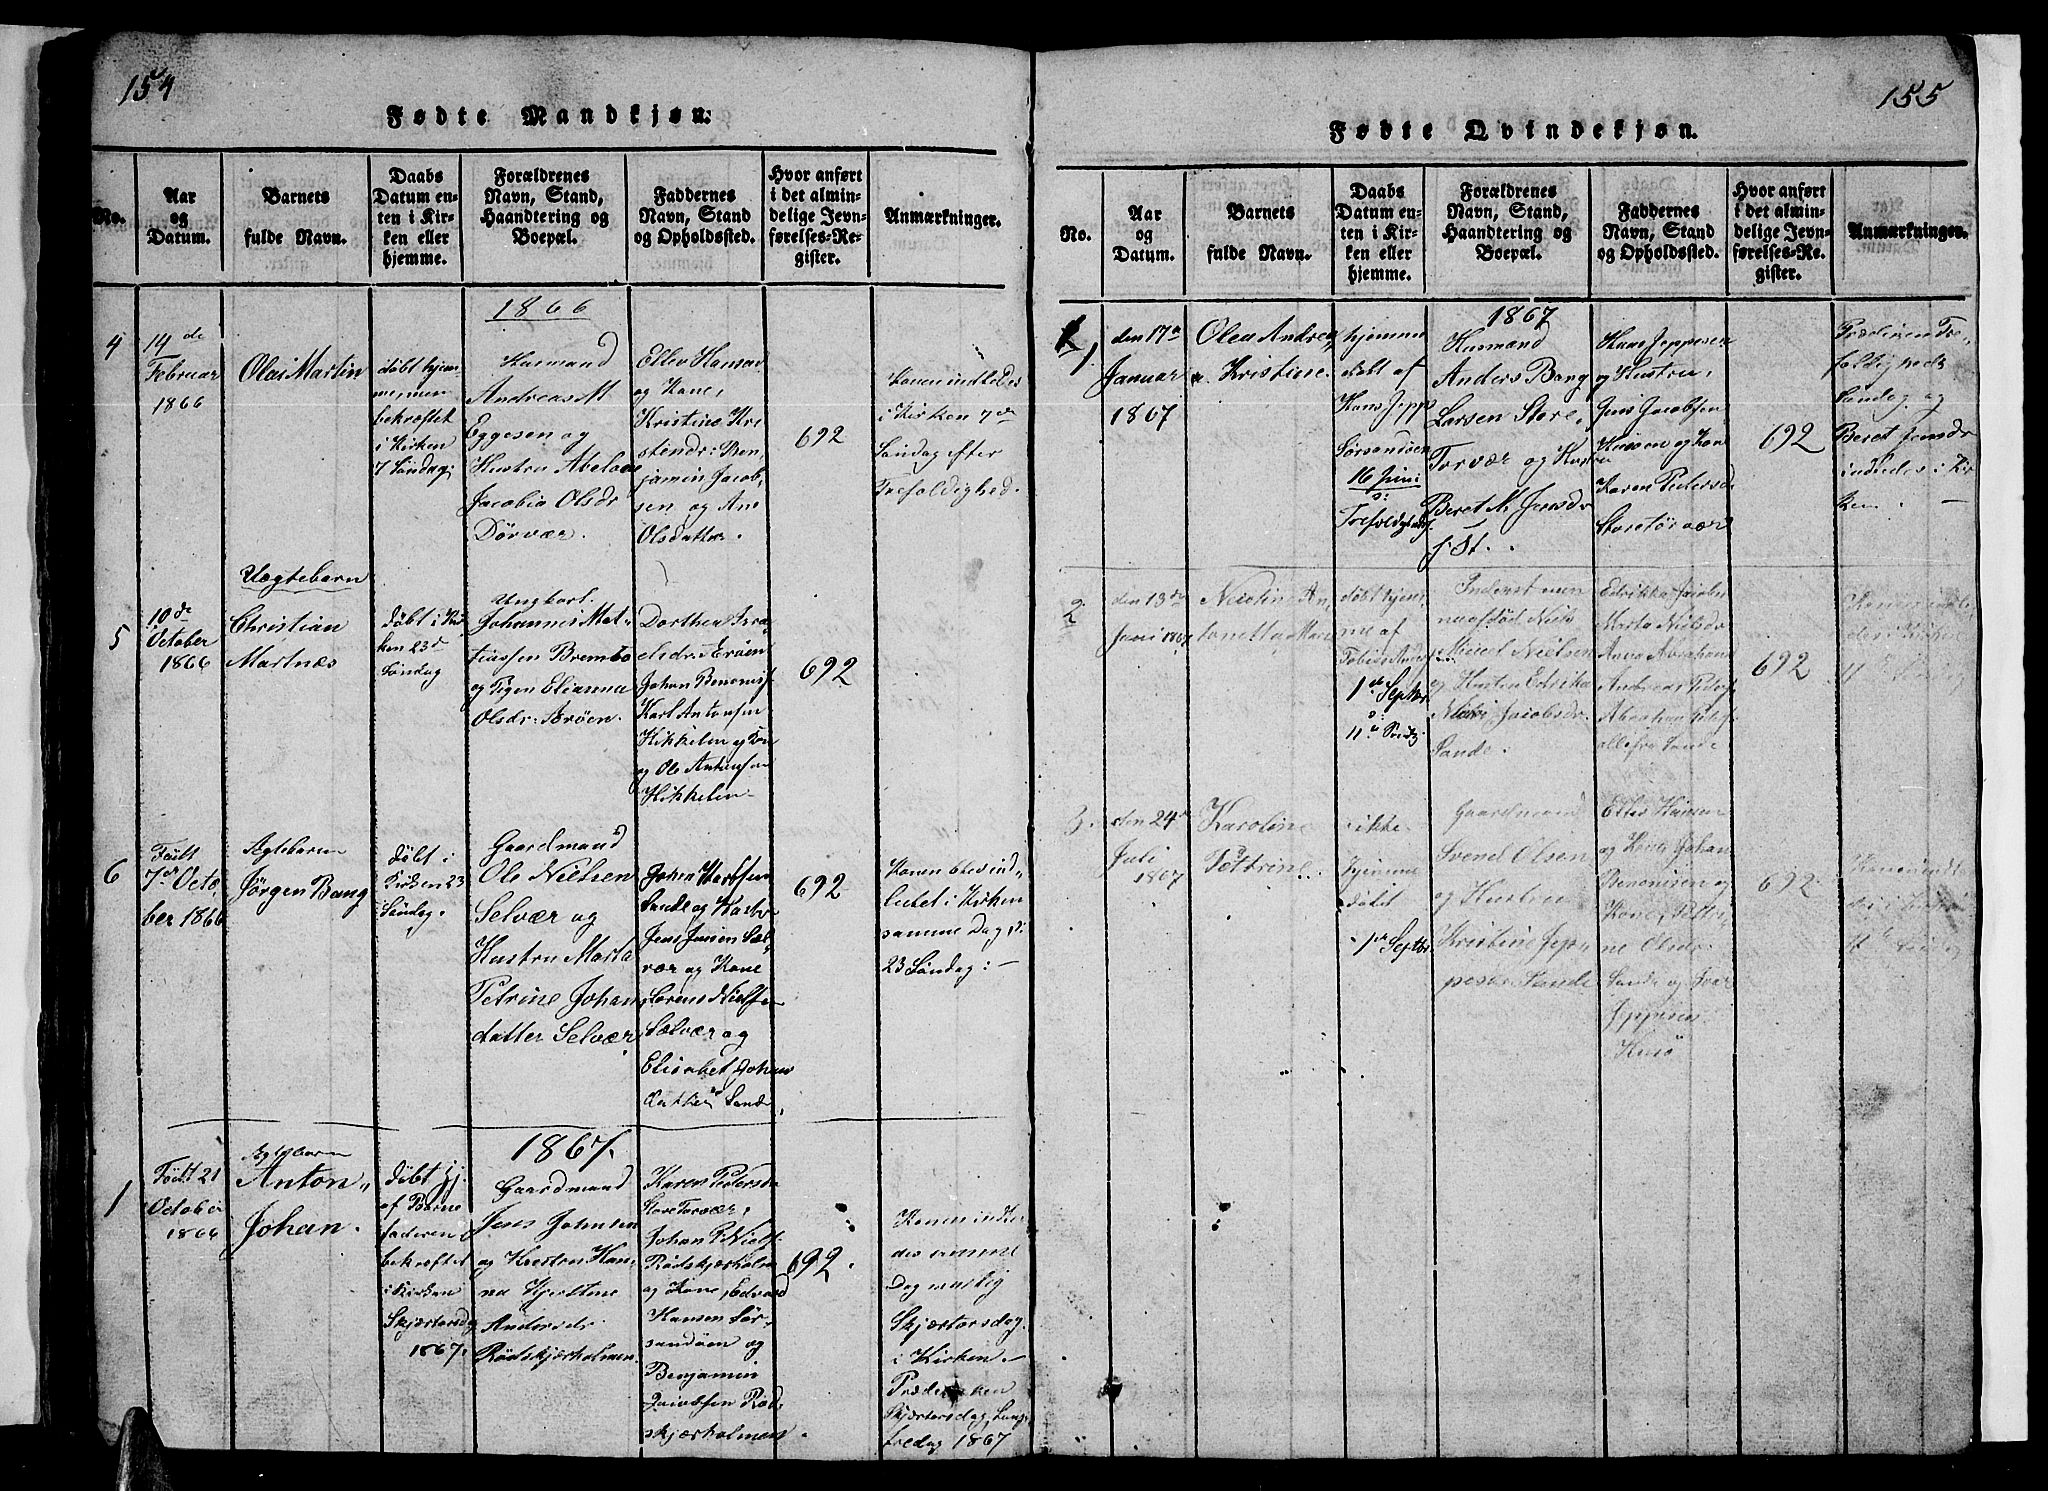 154
Fødte Mandkjøn.
No.
Aar
og
Datum.
Barnets
fulde Navn.
Daabs
Datum en-
ten i Kir-
ken eller
hjemme.
Forældrenes
Navn, Stand,
Haandtering og
Boepæl.
Faddernes
Navn, Stand
og Opholdssted.
Hvor anført
i det almin-
delige Jevn-
førelses-Re-
gister.
Anmærkninger.
1866
4
14de
Februar
1866
Olai Martin
døbt hjem-
me, men
bekræftet
i Kirken
7 Søndag
Husmand
Andreas M
Eggesen og
Hustru Abelone
Jacobia Olsdr
Dørvær.
Ellev Hansen
og Kone,
Kristine Kre
stendr: Ben-
jamin Jacob-
sen og Ane
Olsdatter.
692
Konen indledes
i Kirken 7de
Søndag efter
Trefoldighed.
5
10de
October
1866
Uægtebarn
Christian
Martnæs
døbt i Kir
ken 23de
Søndag
Ungkarl.
Johannes Mat-
tiassen Brembo
og Pigen Elianna
Olsdr:
Dorthea Isra-
elsdr:
Johan Benonis
Karl Antonsen
Hikkelen og Kone
og Ole Antonsen
Hikkelen.
692
6
Født
7de Octo
ber 1866
Ægtebarn
Jørgen Bang
døbt i
Kirken 23
Søndag.
Gaardmand
Ole Nielsen
Selvær og
Hustru Marta
Petrine Johan
datter Selvær
Johan
Sande og Hustr
Jens Jensen Sæl-
vær og Kone
Sørens Nielsen
Sælvær og
Elisabet Johans
datter Sande
692
Konen blev ind-
ledet i Kirken
samme Dag,
23 Søndag: —
1867.
1
Født 21
October
1866
Ægtebarn
Anton,,
Johan.
døbt hj.
af Barne
faderen
bekræftet
i Kirken
Skjærtorsdag
1867.
Gaardmand
Jens Johnsen
og Hustru Han-
na Hjertine
Andersdr
Rødskjærholmen
Karen Pedersdr
Store Torvær,
Johan P Niels
Rødskjærholm
og Kone, Edvard
Hansen Sør-
sandøen og
Benjamin
Jacobsen Rød
skjærholmen.
692.
Konen indle
des samme
Dag
Skjærtorsdag
i Kirken. —
Skjærtorsdag, Lang
fredag 1867
155
Fødte Qvindekjøn.
No.
Aar
og
Datum.
Barnets
fulde Navn.
Daabs
Datum en-
ten i Kir-
ken eller
hjemme.
Forældrenes
Navn, Stand,
Haandtering og
Boepæl.
Faddernes
Navn, Stand
og Opholdssted.
Hvor anført
i det almin-
delige Jevn-
førelses-Re-
gister.
Anmærkninger.
1867
1
den 17de
Januar
1867
Olea Andrea
Kristine.
hjemme
døbt af
Hans Jepps
Sørsandøen
16 Juni
s:
Trefoldighed
Husmand
Anders Bang
Larsen Store-
Torvær og Hustru
Beret M Jensdr
Hans Jeppesen
og Hustru,
Jens Jacobsen
Husøen og Kone
Karen Pedersd
Storetorvær
692
Trefoldigheds
Søndag og
Beret Jensdr
indledes i Kir
ken. —
2
den 13de
Juni 1867
An-
tonetta Marie
døbt hjem-
me af
Tobias Anders
1de Septbr
s:
11te Sønd
Inderst
Nielsen
og Hustru Edrika
Jacobsdr
Sande.
Edrikka Jacobs
Marta Nielsdr
Anna Abraham
Andreas Peders
Abraham Peders
alle fra Sande
692
Konen indle-
des i Kirken
11te Søndag
3.
den 24de
Juli
1867
Karoline
Pettrine.
ikke
hjemme
døbt
1ste Septbr
Gaardmand
Svend Olsen
og Hustru
Kristine Jep-
pesdr Sande
Ellev Hansen
og Kone Johan
Benonisen og
Kone, Petri-
ne Olsdr
Sande og Ivar
Jeppesen
Husø
692.
Konen indle
des i Kirken
11te Søndag